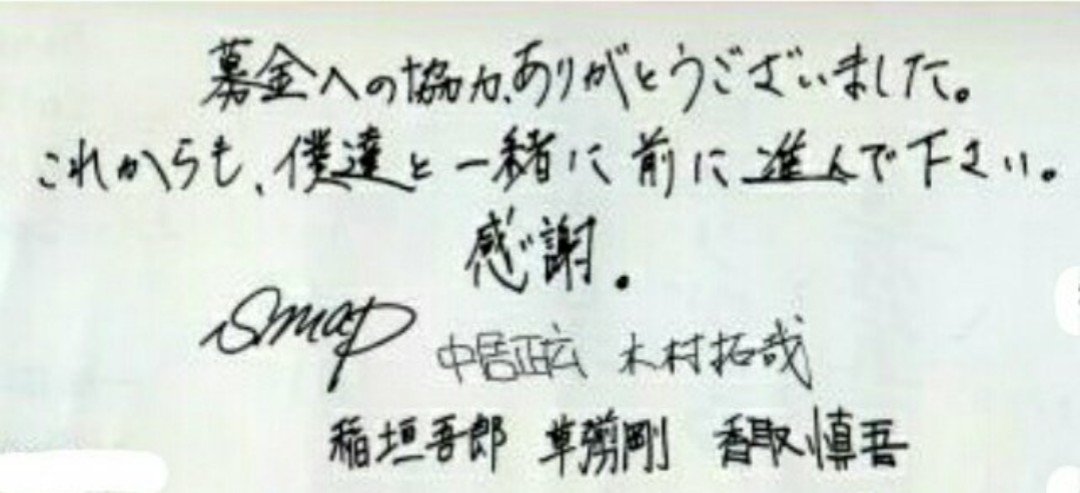 募金への協力、ありがとうございました。
これからも、僕達と一緒に前に進んで下さい。
感謝。
smap 中居正広 木村拓哉
稲垣吾郎 草彅剛 香取慎吾